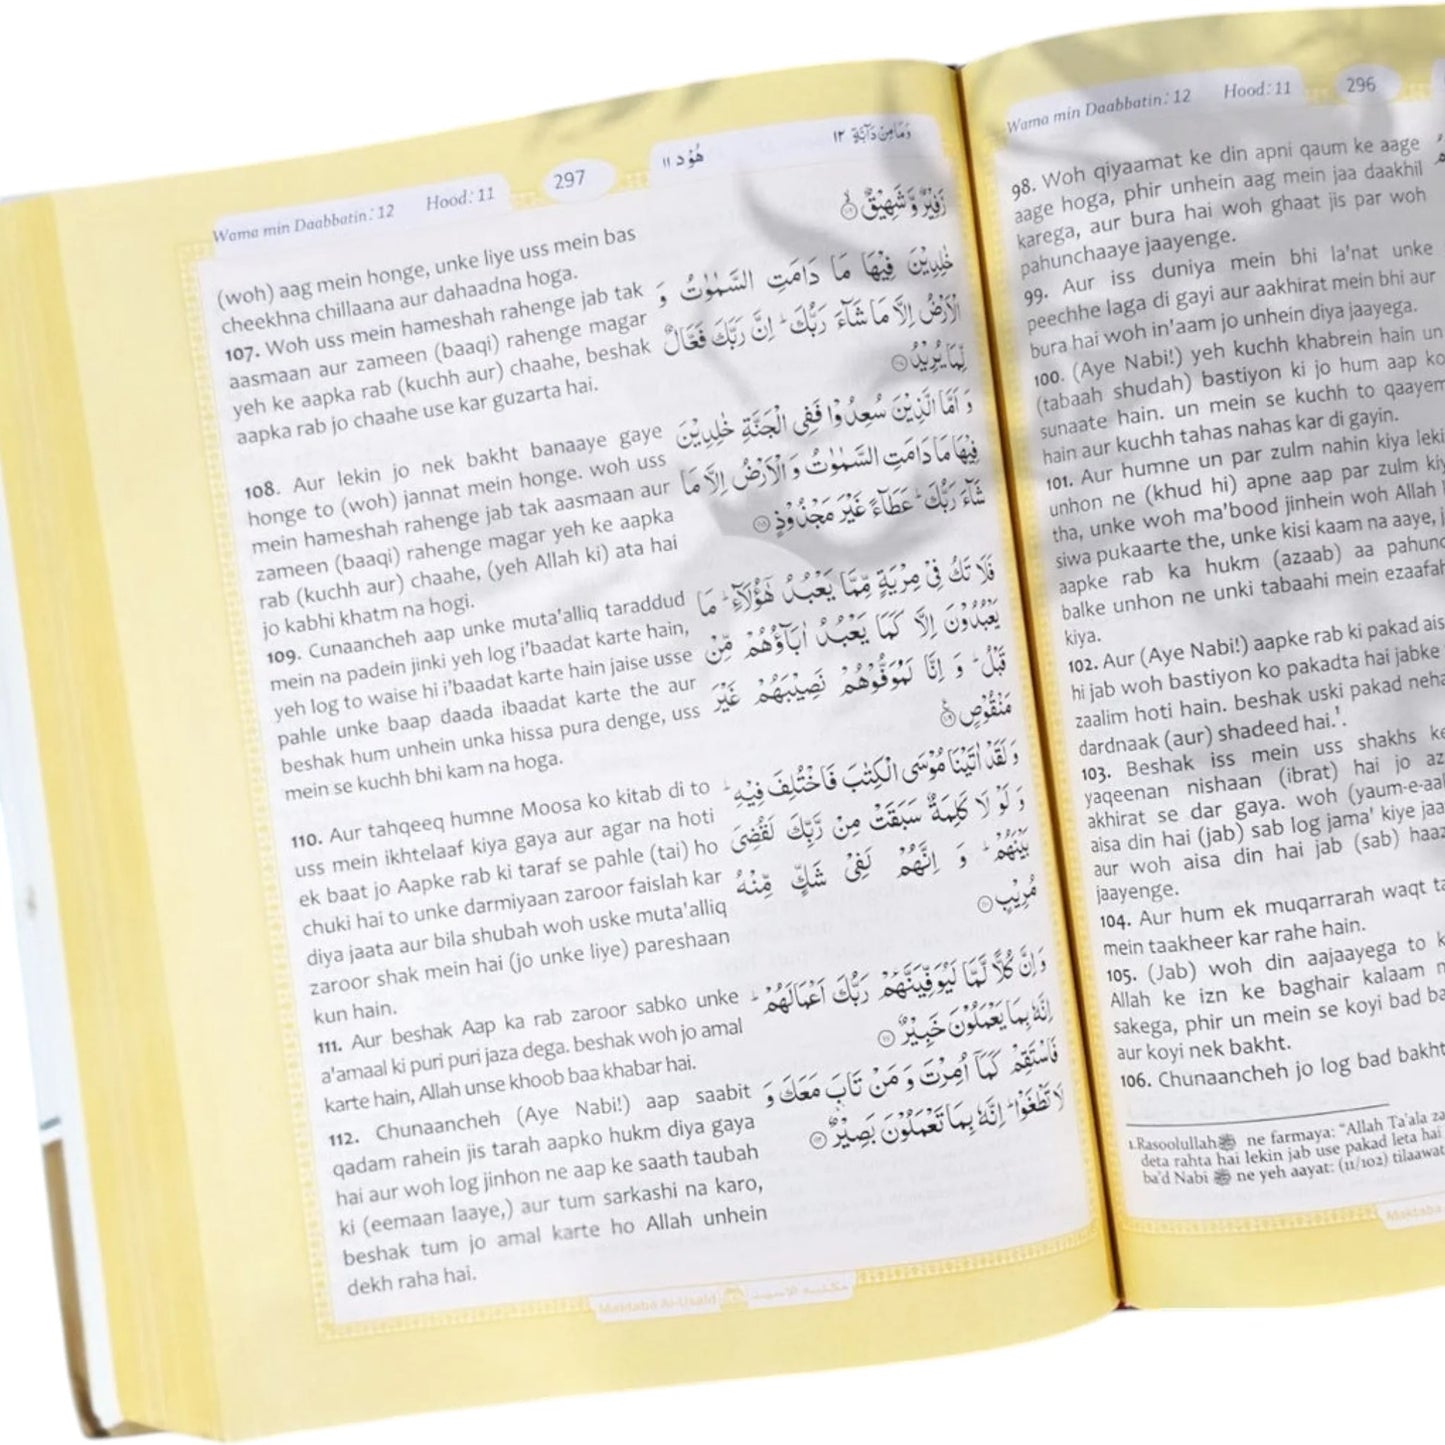 Wama min Daabbatin: 12 Hood: 11 297 هُوْد ١١ وَمَا مِنْ دَآبَّةٍ ١٢
(woh) aag mein honge, unke liye uss mein bas
cheekhna chillaana aur dahaadna hoga.
107. Woh uss mein hameshah rahenge jab tak
aasmaan aur zameen (baaqi) rahenge magar
yeh ke aapka rab (kuchh aur) chaahe, beshak
aapka rab jo chaahe use kar guzarta hai.
108. Aur lekin jo nek bakht banaaye gaye
honge to (woh) jannat mein honge. woh uss
mein hameshah rahenge jab tak aasmaan aur
zameen (baaqi) rahenge magar yeh ke aapka
rab (kuchh aur) chaahe, (yeh Allah ki) ata hai
jo kabhi khatm na hogi.
109. Cunaancheh aap unke muta'alliq taraddud
mein na padein jinki yeh log i'baadat karte hain,
yeh log to waise hi i'baadat karte hain jaise usse
pahle unke baap daada ibaadat karte the aur
beshak hum unhein unka hissa pura denge, uss
mein se kuchh bhi kam na hoga.
110. Aur tahqeeq humne Moosa ko kitab di to
uss mein ikhtelaaf kiya gaya aur agar na hoti
ek baat jo Aapke rab ki taraf se pahle (tai) ho
chuki hai to unke darmiyaan zaroor faislah kar
diya jaata aur bila shubah woh uske muta'alliq
zaroor shak mein hai (jo unke liye) pareshaan
kun hain.
111. Aur beshak Aap ka rab zaroor sabko unke
a'amaal ki puri puri jaza dega. beshak woh jo amal
karte hain, Allah unse khoob baa khabar hai.
112. Chunaancheh (Aye Nabi!) aap saabit
qadam rahein jis tarah aapko hukm diya gaya
hai aur woh log jinhon ne aap ke saath taubah
ki (eemaan laaye,) aur tum sarkashi na karo,
beshak tum jo amal karte ho Allah unhein
dekh raha hai.
زَفِيْرٌ وَّ شَهِيْقٌ
خٰلِدِيْنَ فِيْهَا مَا دَامَتِ السَّمٰوٰتُ وَ
الْاَرْضُ اِلَّا مَا شَآءَ رَبُّكَ ؕ اِنَّ رَبَّكَ فَعَّالٌ
لِّمَا يُرِيْدُ
وَ اَمَّا الَّذِيْنَ سُعِدُوْا فَفِى الْجَنَّةِ خٰلِدِيْنَ
فِيْهَا مَا دَامَتِ السَّمٰوٰتُ وَ الْاَرْضُ اِلَّا مَا
شَآءَ رَبُّكَ ؕ عَطَآءً غَيْرَ مَجْذُوْذٍ
فَلَا تَكُ فِىْ مِرْيَةٍ مِّمَّا يَعْبُدُ هٰٓؤُلَآءِ ؕ مَا
يَعْبُدُوْنَ اِلَّا كَمَا يَعْبُدُ اٰبَآؤُهُمْ مِّنْ
قَبْلُ ؕ وَ اِنَّا لَمُوَفُّوْهُمْ نَصِيْبَهُمْ غَيْرَ
مَنْقُوْصٍ
وَ لَقَدْ اٰتَيْنَا مُوْسَى الْكِتٰبَ فَاخْتُلِفَ فِيْهِ ؕ
وَ لَوْ لَا كَلِمَةٌ سَبَقَتْ مِنْ رَّبِّكَ لَقُضِىَ
بَيْنَهُمْ ؕ وَ اِنَّهُمْ لَفِىْ شَكٍّ مِّنْهُ
مُرِيْبٍ
وَ اِنَّ كُلًّا لَّمَّا لَيُوَفِّيَنَّهُمْ رَبُّكَ اَعْمَالَهُمْ ؕ
اِنَّهٗ بِمَا يَعْمَلُوْنَ خَبِيْرٌ
فَاسْتَقِمْ كَمَآ اُمِرْتَ وَ مَنْ تَابَ مَعَكَ وَ
لَا تَطْغَوْا ؕ اِنَّهٗ بِمَا تَعْمَلُوْنَ بَصِيْرٌ
Maktaba Al-Usaid
Wama min Daabbatin: 12 Hood: 11 296
98. Woh qiyaamat ke din apni qaum ke aage
aage hoga, phir unhein aag mein jaa daakhil
karega, aur bura hai woh ghaat jis par woh
pahunchaaye jaayenge.
99. Aur iss duniya mein bhi la'nat unke
peechhe laga di gayi aur aakhirat mein bhi aur
bura hai woh in'aam jo unhein diya jaayega.
100. (Aye Nabi!) yeh kuchh khabrein hain un
(tabaah shudah) bastiyon ki jo hum aap ko
sunaate hain. un mein se kuchh to qaayem
hain aur kuchh tahas nahas kar di gayin.
101. Aur humne un par zulm nahin kiya leki
unhon ne (khud hi) apne aap par zulm kiy
tha, unke woh ma'bood jinhein woh Allah
siwa pukaarte the, unke kisi kaam na aaye, j
aapke rab ka hukm (azaab) aa pahunc
balke unhon ne unki tabaahi mein ezaafah
kiya.
102. Aur (Aye Nabi!) aapke rab ki pakad ais
hi jab woh bastiyon ko pakadta hai jabke
zaalim hoti hain. beshak uski pakad neha
dardnaak (aur) shadeed hai.¹.
103. Beshak iss mein uss shakhs ke
yaqeenan nishaan (ibrat) hai jo az
akhirat se dar gaya. woh (yaum-e-aa
aisa din hai (jab) sab log jama' kiye jaa
aur woh aisa din hai jab (sab) haaz
jaayenge.
104. Aur hum ek muqarrarah waqt ta
mein taakheer kar rahe hain.
105. (Jab) woh din aajaayega to k
Allah ke izn ke baghair kalaam n
sakega, phir un mein se koyi bad ba
aur koyi nek bakht.
106. Chunaancheh jo log bad bakht
1.Rasoolullah ﷺ ne farmaya: "Allah Ta'ala za
deta rahta hai lekin jab use pakad leta hai
ba'd Nabi ﷺ ne yeh aayat: (11/102) tilaawat
Maktaba